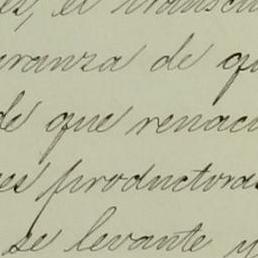 es, el transcu
uranza de qu
de que renaci
es productoras
se levante y